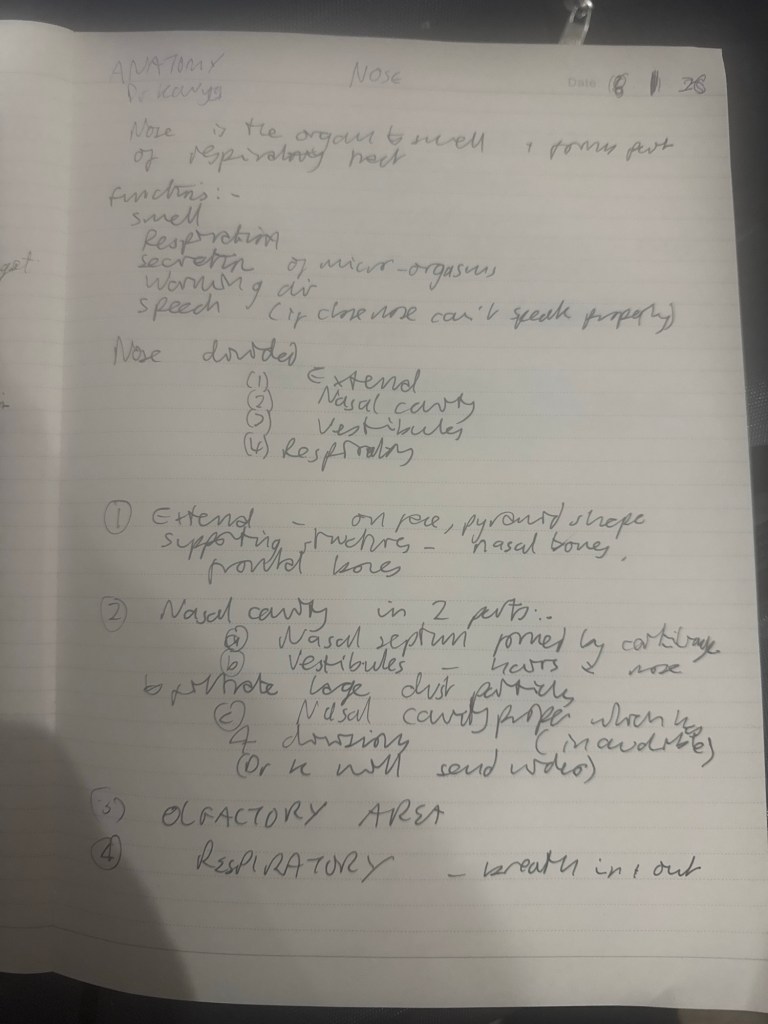 ANATOMY NOSE Date 18 1 26
Dr Kavya
Nose is the organ to smell + forms part
of respiratory tract
functions:-
smell
Respiration
secretion of micro-orgasms
warming air
speech (if close nose can't speak properly)
Nose divided
(1) Extend
(2) Nasal cavity
(3) Vestibules
(4) Respiratory
① Extend - on face, pyramid shape
supporting structures - nasal bones,
frontal bones
② Nasal cavity in 2 parts:-
ⓐ Nasal septum formed by cartilage
ⓑ Vestibules - hairs nose
to filtrate large dust particles
ⓒ Nasal cavity proper which has
4 divisions (inaudible)
(Dr K will send video)
③ OLFACTORY AREA
④ RESPIRATORY - breath in + out